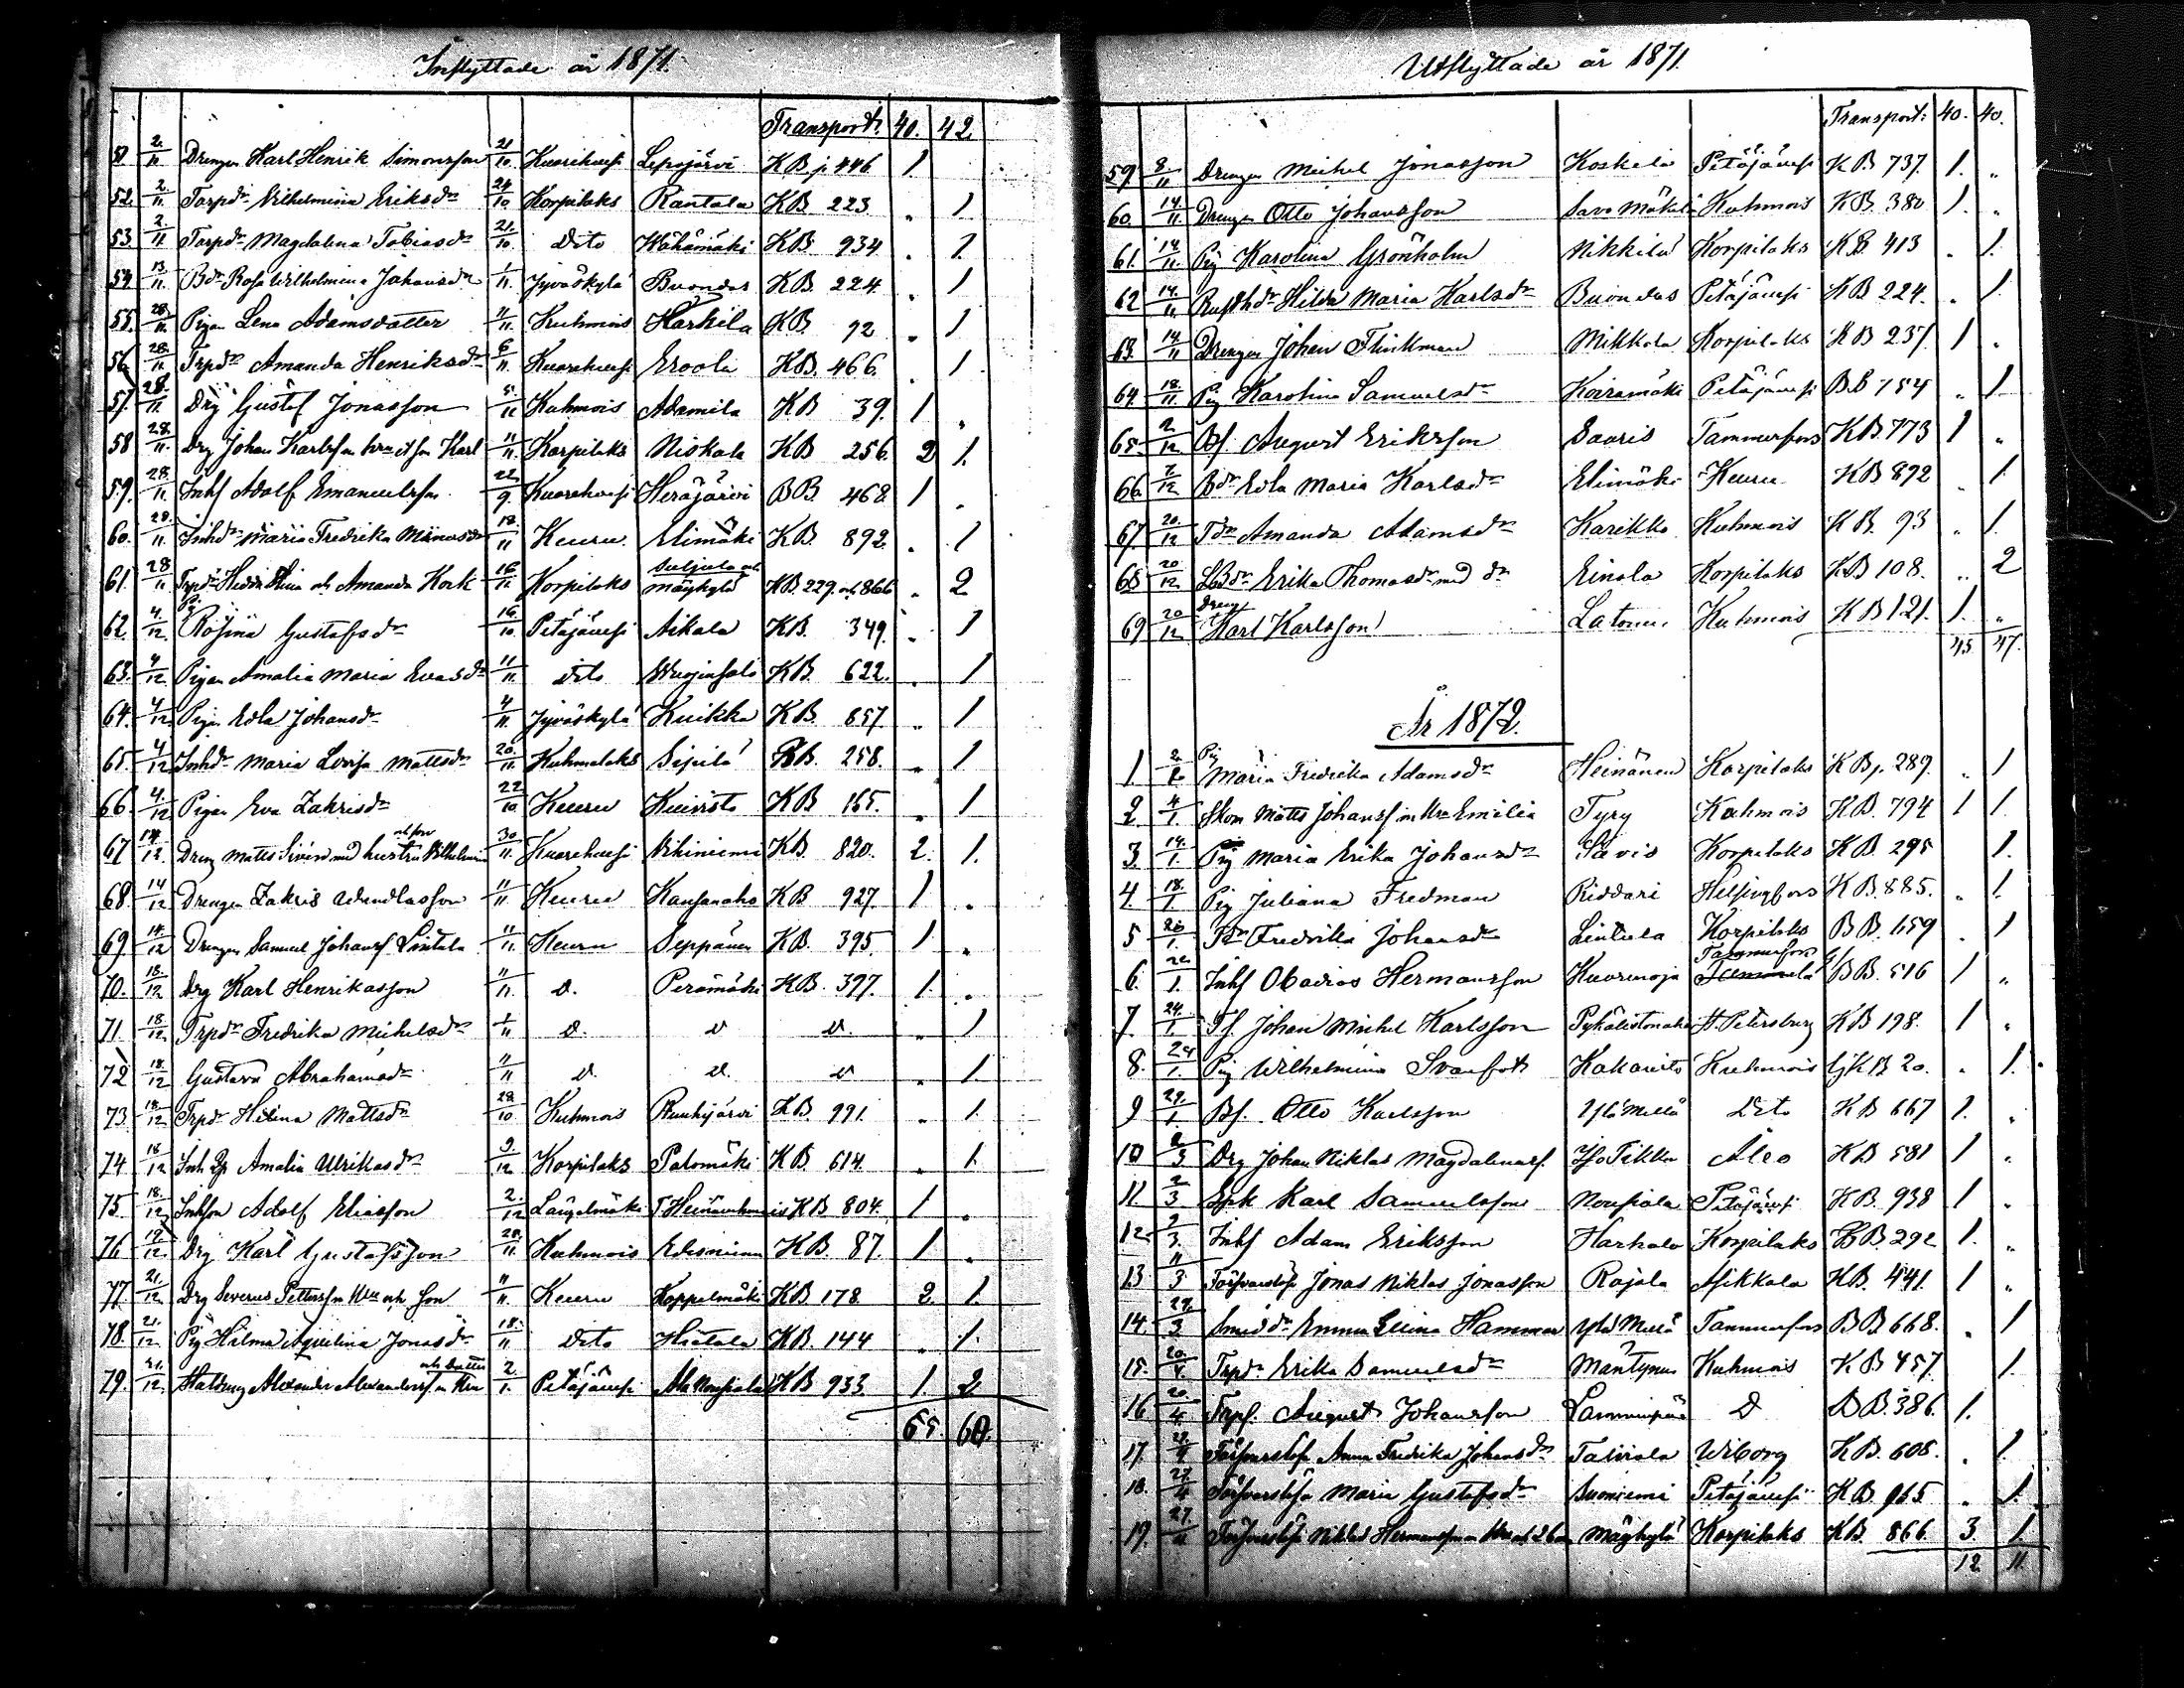 Inflyttade år 1871.
Transport. 40. 42.
51 2/11. Drengen Karl Henrik Simonsson 21/10. Kuorehvesi Leposjärvi KB p. 446 1
52. 2/11. Torpdr Vilhelmina Eriksdr 24/10 Korpilaks Rantala KB 223. „ 1
53. 2/11 Torpdr Magdalena Tobiasdr 21./10. Dito Kähämäki KB 934 „ 1.
54. 13./11. Bdr Rosa Wilhelmina Johansdr 1/11. Jyväskylä Buondas KB 224. „ 1
55. 28./11. Pigan Lena Adamsdotter 11/11. Kuhmois Harkila KB. 92 „ 1
56. 28./11. Trpdr Amanda Henriksdr 6/11. Kuorehvesi Eroola KB. 466. „ 1.
57. 28./11. Drg Gustaf Jonasson 5./11 Kuhmois Adamila KB 39. 1 „
58 28./11. Drg Johan Karlsson Karl 11/11. Korpilaks Niskala KB 256. 2 1.
59. 28./11. Inhs Adolf Emanuelsson 22/9. Kuorehvesi Heräjärvi BB. 468. 1 „
60. 28./11. Inhdr Maria Fredrika 18./11 Keuru. Elimäki KB. 892. „ 1
61. 28/11 Trpdr Hedda Stina och Amanda Kork 16/11. Korpilaks mäykylä KB. 229. och 866 „ 2
62. 4/12. Pig Rosina Gustafsdr 16./10. Petäjävesi Aikala KB. 349. „ 1
63. 4/12. Pigan Amalia Maria Evasdr 11/11. Dito KB. 622. „ 1
64. 4/12. Pigan Edla Johansdr 4/11. Jyväskylä Kuikka KB. 857. „ 1
65. 4/12 Inhdr Maria Lovisa Mattsdr 20./11. Kuhmalaks Sipilä KB. 258. „ 1
66. 4./12. Pigan Eva Zakrisdr 22/10 Keuru Kuivisto KB 165. „ 1
67 14/12. Dreng Matts Sivén med hustru och son Vilhelmina 30/11. Kuorehvesi Vihiniemi KB. 820. 2. 1.
68. 14/12 Drengen Zakris Wendlasson 11/11 Keuru Kansanaho KB 927. 1 „
69. 14./12 Drengen Samuel Johanss Lintula 11/11. Keuru Seppänen KB. 395. 1 „
70. 18./12 Drg Karl Henriksson 11/11. D. Perämäki KB. 397. 1. „
71. 18./12 Trpdr Fredrika Michelsdr 1/11 D. D D. „ 1
72 18./12 Gustava Abrahamsdr 11/11 D. D. D „ 1.
73. 18./12 Trpdr Helena Mattsdr 28./10 Kuhmois Ruuhijärvi KB. 991. „ 1.
74 18/12 Inh Pig Amalia Ulrikasdr 9./12 Korpilaks Palomäki KB. 614. „ 1.
75. 18./12. Inhson Adolf Eliasson 2./12 Längelmäki KB 804. 1 „
76 19./12. Drg Karl Gustafsson 20./11. Kuhmois Edesniemi KB. 87. 1 „
77. 21./12. Drg Severus Petterss m Hu och son 11/11. Keuru Koppelmäki KB 178. 2. 1.
78. 21./12. Pig Hilma Aqvilina Jonasdr 18./11 Dito Hietala KB. 144 „ 1.
79. 21./12. Alexander Alexanderss m Hu och dotter 2./1. Petäjävesi Ala Nousiala KB 933 1. 2
65. 60.
Utflyttade år 1871.
Transport: 40. 40.
59. 8/11 Drengen Michel Jonasson Koskela Petäjävesi KB. 737. 1. „
60. 14./11. Drengen Otto Johansson Savo Mäkelä Kuhmois KB. 380 1. „
61. 14./11. Pig Karolina Grönholm Nikkilä Korpilaks KB. 413 „ 1.
62 14./11. Rusthdr Hilda Maria Karlsdr Buondas Petäjävesi KB 224. „ 1.
63. 14./11 Drengen Johan Flinkman Mikkola Korpilaks KB 237 1 „
64. 18./11. Pig Karolina Samuelsdr Koiramäki Petäjävesi BB 754 „ 1.
65. 2./12. Bs. August Eriksson Sauris Tammerfors KB. 773 1 „
66. 7./12 Bdr Edla Maria Karlsdr Elimäki Keuru KB 892 „ 1.
67. 20./12 Tdr Amanda Adamsdr Karikko Kuhmois KB. 93 „ 1.
68 20/12 Erika Thomasdr med dr Einola Korpilaks KB 108. „ 2
69 20/12. Dreng Karl Karlsson Latomu. Kuhmois KB 121. 1. „
45 47.
År 1872.
1 2./1. Pig Maria Fredrika Adamsdr Heinänen Korpilaks KB p. 289. „ 1
2. 4/1. Skom Matts Johanss m Hu Emilia Tyry Kuhmois KB. 794 1 1.
3. 14./1. Pig Maria Erika Johansdr Savis Korpilaks KB. 295 1.
4 18./1. Pig Juliana Fredman Riddari Helsingfors KB 885. „ 1.
5 20/1. Fredrika Johansdr Lintula Korpilaks BB. 159 „ 1
6. 22./1. Inhs Obadias Hermansson Kuorenoja Tammerfors BB. 516 1 „
7. 24./1. Ts. Johan Michel Karlsson St. Petersburg KB 198. 1 „
8. 24/1. Pig Wilhelmina Svanfot Kakaristo Kuhmois KB 20. „ 1.
9 29./1. Bs. Otto Karlsson Ylä Mellä Dito KB 667 1. „
10 2/3 Drg Johan Niklas Magdalenass. Iso Tikka Åbo KB 581 1 „
11. 2/3 Karl Samuelsson Nousiala Petäjävesi KB. 938 1 „
12. 9/3. Inhs Adam Eriksson Harkala Korpilaks BB. 292 1. „
13 11/3. Försvarslöse Jonas Niklas Jonasson Rajala Asikkala KB. 441. 1 „
14. 29./3 Smeddr Emma Elina Hammar Ylä Mellä Tammerfors BB. 668. „ 1
15. 20./4. Trpdr Erika Samuelsdr Mäntynen Kuhmois KB 457 1.
16 20./4. Trps. August Johansson Lammenpää D BB. 386. 1.
17. 27./4 Försvarslösa Anna Fredrika Johansdr Taivala Wiborg KB. 608. „ 1.
18. 27./4 Försvarslösa Maria Gustafsdr Suoniemi Petäjävesi KB. 965 „ 1.
19. 27./4 Försvarslöse Niklas Hermansson m Hu och 2 barn Mäykylä Korpilaks KB. 866. 3 1
12 11.